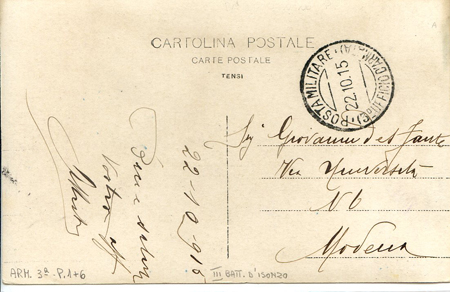 CARTOLINA POSTALE
CARTE POSTALE
TENSI
POSTA MILITARE
22.10.15
22-10-915
Bene e saluti
Vostro aff
Sig Giovanni del Fante
Via Università
N 6
Modena
ARM. 3ª - P. 1+6
III BATT. D'ISONZO